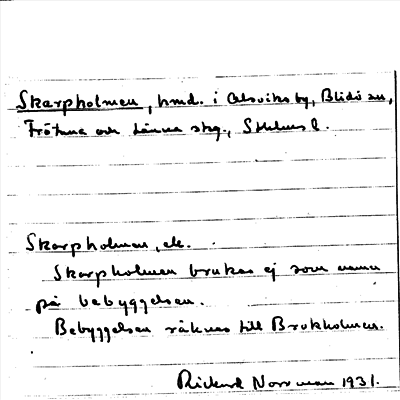 Skarpholmen, hmd. i Alsviks by, Blidö sn,
Frötuna och Länna skg., Sthlms l.
Skarpholmen, ek.
Skarpholmen brukas ej som namn
på bebyggelsen.
Bebyggelsen räknas till Brokholmen.
Rickard Norrman 1931.